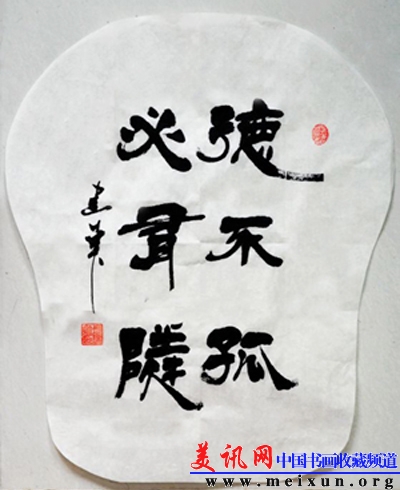 德不孤
必有隣
美讯网 中国书画收藏频道
www.meixun.org